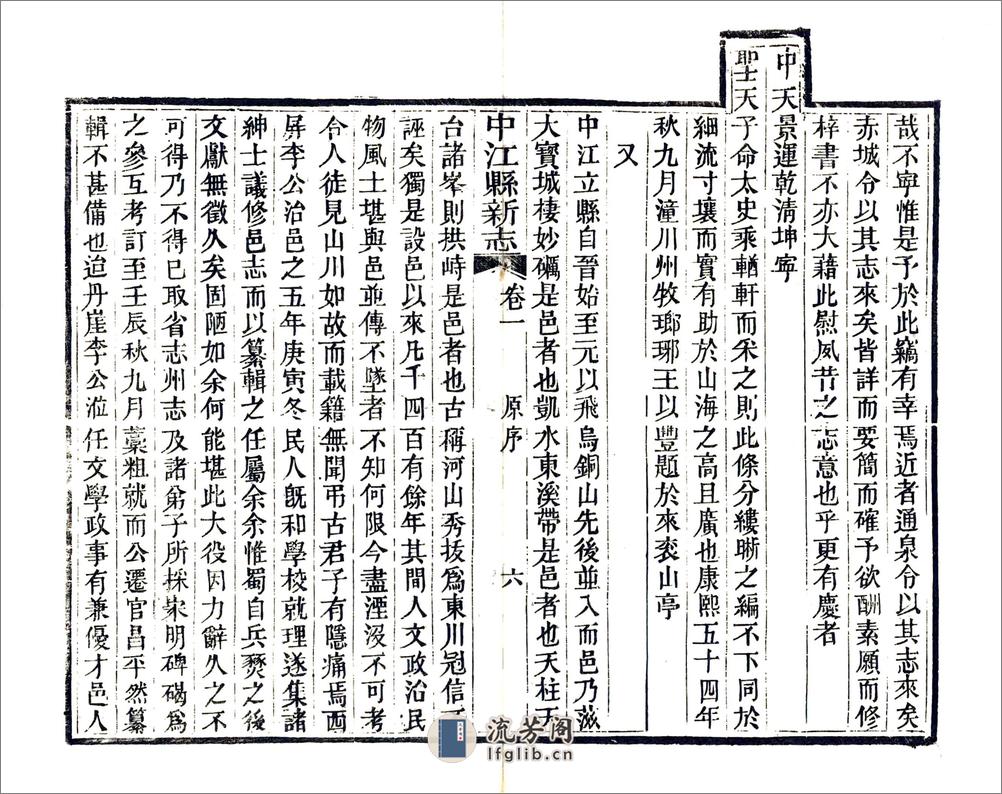 哉不寧惟是予於此竊有幸焉近者通泉令以其志來矣
赤城令以其志來矣皆詳而要簡而確予欲酬素願而修
梓書不亦大藉此慰夙昔之志意也乎更有慶者
中天景運乾清坤寧
聖天子命太史乘輶軒而采之則此條分縷晰之編不下同於
細流寸壤而實有助於山海之高且廣也康熙五十四年
秋九月潼川州牧瑯琊王以豐題於來袞山亭
又
中江立縣自晉始至元以飛烏銅山先後並入而邑乃茲
大寶城棲妙礪是邑者也凱水東溪帶是邑者也天柱天
中江縣新志 卷一 原序 六
台諸峯則拱峙是邑者也古稱河山秀拔爲東川冠信不
誣矣獨是設邑以來凡千四百有餘年其間人文政治民
物風土堪與邑並傳不墜者不知何限今盡湮沒不可考
令人徒見山川如故而載籍無聞弔古君子有隱痛焉西
屏李公治邑之五年庚寅冬民人旣和學校就理遂集諸
紳士議修邑志而以纂輯之任屬余余惟蜀自兵燹之後
文獻無徵久矣固陋如余何能堪此大役因力辭久之不
可得乃不得已取省志州志及諸弟子所採家明碑碣爲
之參互考訂至壬辰秋九月藁粗就而公遷官昌平然纂
輯不甚備也迨丹崖李公涖任文學政事有兼優才邑人
流芳阁
lfglib.cn